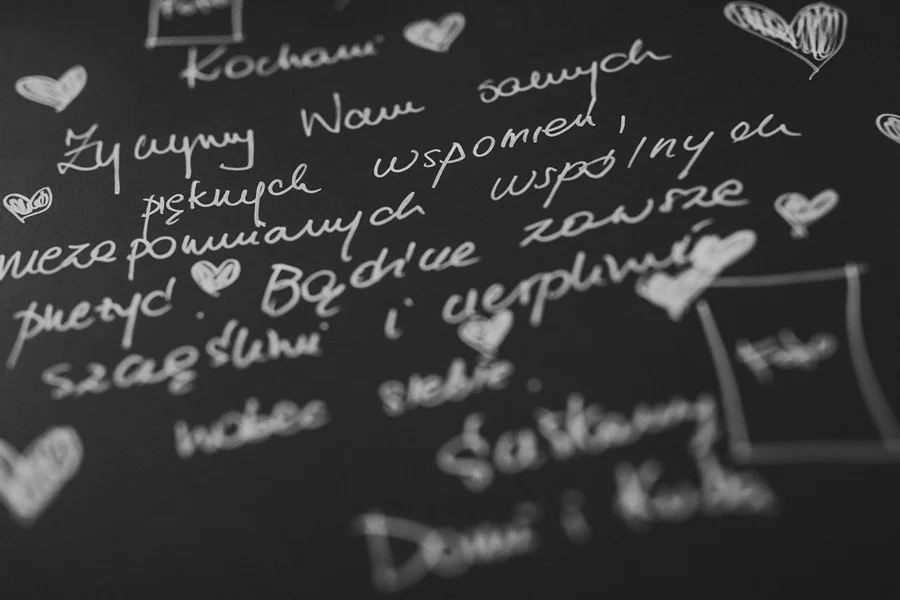 Foto
Kochani
Życzymy Wam samych
pięknych wspomnień,
niezapomnianych wspólnych
przeżyć. Bądźcie zawsze
szczęśliwi i cierpliwi
wobec siebie.
Foto
Ściskamy
Domi i